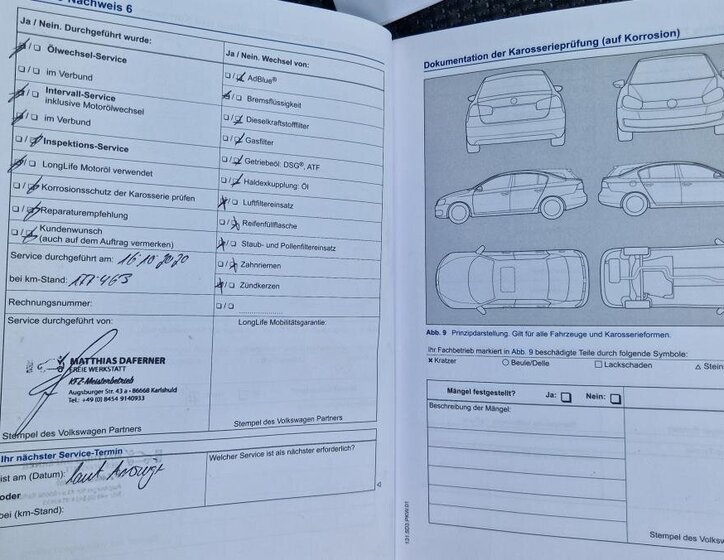 Nachweis 6
Ja / Nein. Durchgeführt wurde:
Ölwechsel-Service
im Verbund
Intervall-Service
inklusive Motorölwechsel
im Verbund
Inspektions-Service
LongLife Motoröl verwendet
Korrosionsschutz der Karosserie prüfen
Reparaturempfehlung
Kundenwunsch
(auch auf dem Auftrag vermerken)
Service durchgeführt am: 16.10.2020
bei km-Stand:
Rechnungsnummer:
Service durchgeführt von:
MATTHIAS DAFERNER
FREIE WERKSTATT
KFZ-Meisterbetrieb
Augsburger Str. 43 a - 86668 Karlshuld
Tel.: +49 (0) 8454 9140933
Stempel des Volkswagen Partners
Ja / Nein. Wechsel von:
AdBlue®
Bremsflüssigkeit
Dieselkraftstofffilter
Gasfilter
Getriebeöl: DSG®, ATF
Haldexkupplung: Öl
Luftfiltereinsatz
Reifenfüllflasche
Staub- und Pollenfiltereinsatz
Zahnriemen
Zündkerzen
LongLife Mobilitätsgarantie:
Stempel des Volkswagen Partners
Ihr nächster Service-Termin
ist am (Datum): laut Anzeige
oder
bei (km-Stand):
Welcher Service ist als nächster erforderlich?
Dokumentation der Karosserieprüfung (auf Korrosion)
Abb. 9 Prinzipdarstellung. Gilt für alle Fahrzeuge und Karosserieformen.
Ihr Fachbetrieb markiert in Abb. 9 beschädigte Teile durch folgende Symbole:
× Kratzer ○ Beule/Delle □ Lackschaden △ Stein
Mängel festgestellt? Ja: Nein:
Beschreibung der Mängel:
Stempel des Volksw
131.5D3.PKW.01